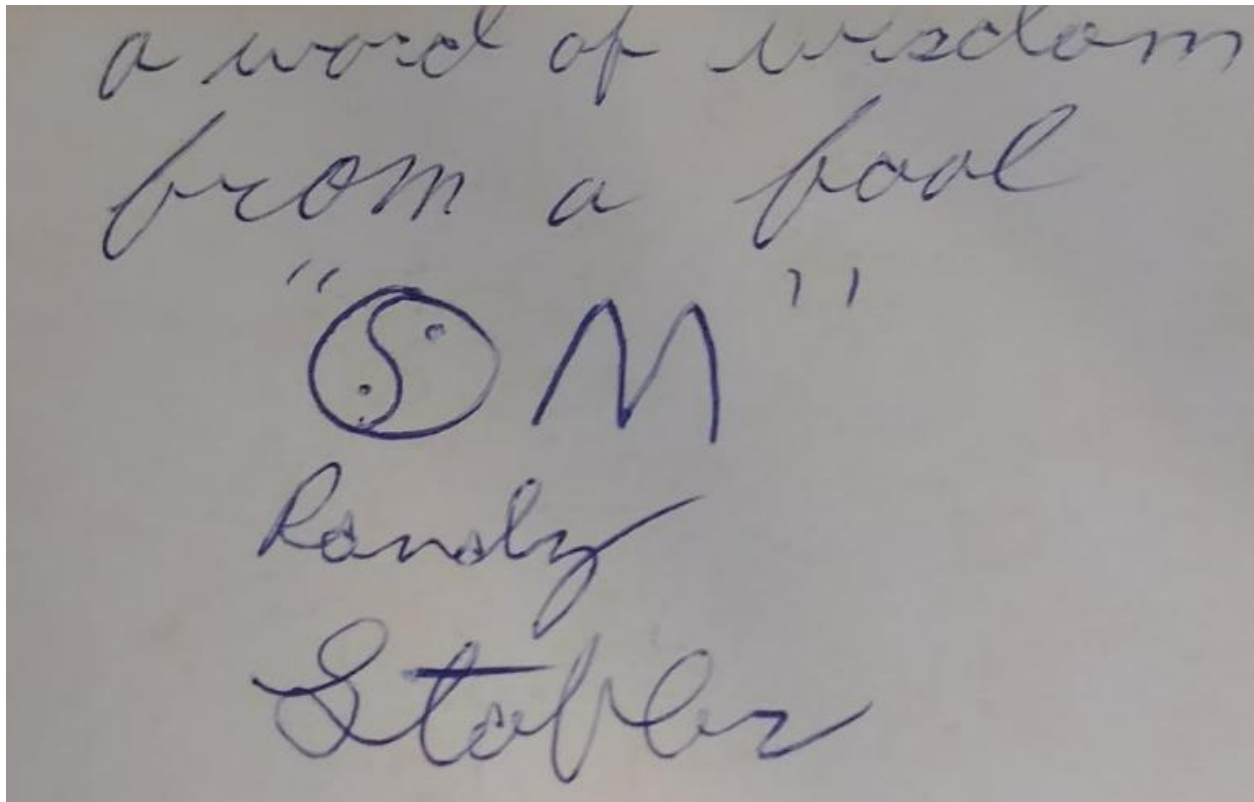 a word of wisdom
from a fool
"OM"
Randy